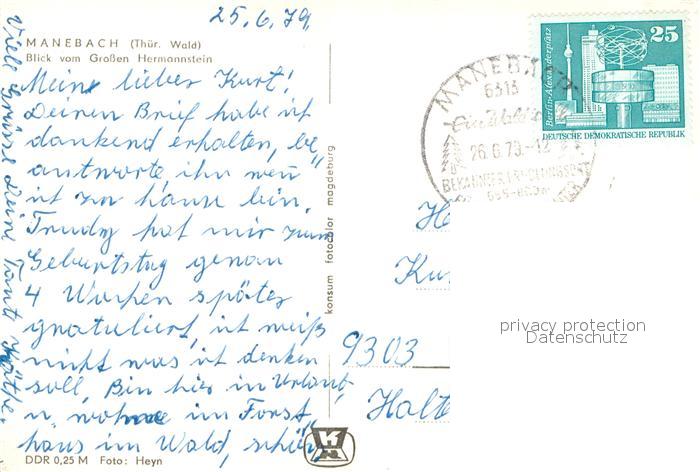 25.6.79
MANEBACH (Thür. Wald)
Blick vom Großen Hermannstein
Mein lieber Kurt!
Deinen Brief habe ich
dankend erhalten, be„
antworte ihn wen
ich zu hause bin,
Trudy hat mir zum
Geburtstag genau
4 Wochen später
gratuliert, ich weiß
nicht was ich denken
soll, Bin hier in Urlaub,
u. wohne im Forst
haus im Wald, schön
Viele Grüße Deine Tante Käthe.
DDR 0,25 M Foto: Heyn
konsum fotocolor magdeburg
25
Berlin-Alexanderplatz
DEUTSCHE DEMOKRATISCHE REPUBLIK
MANEBACH
6313
26.6.79.-12
Ku
9303
Halte
privacy protection
Datenschutz